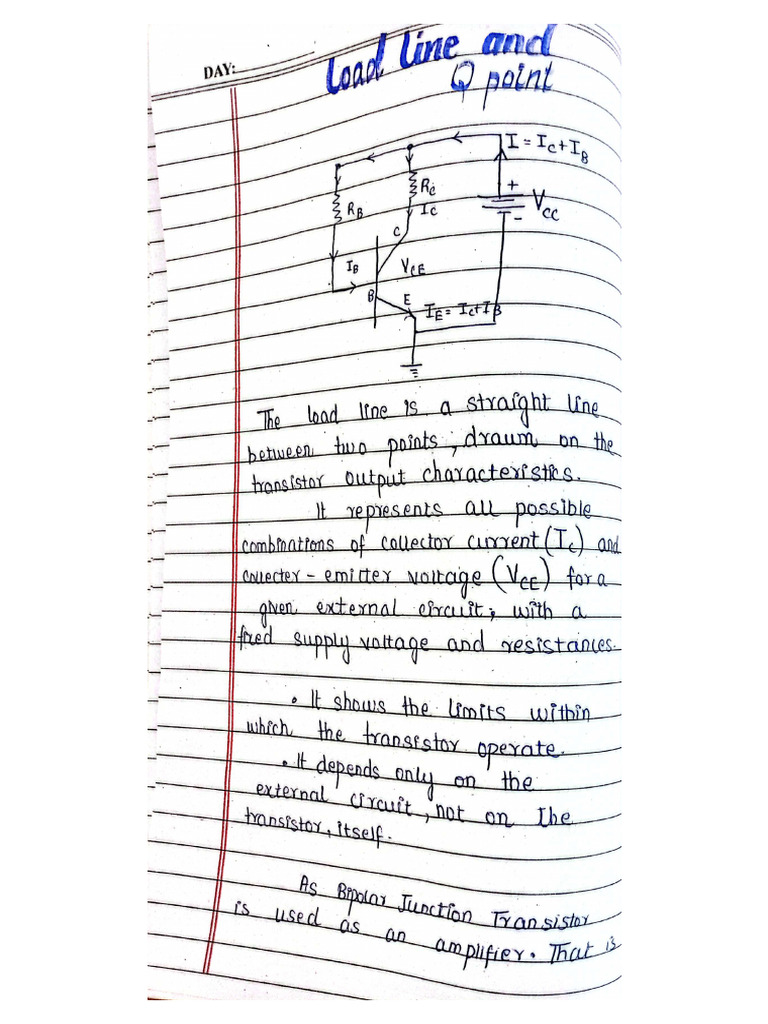 DAY:
Load line and
Q point
I = IC + IB
RC
RB
IC
+
VCC
-
C
IB
VCE
B
E
IE = IC + IB
The load line is a straight line
between two points, drawn on the
transistor output characteristics.
It represents all possible
combinations of collector current (IC) and
collecter - emitter voltage (VCE) for a
given external circuit, with a
fixed supply voltage and resistances.
• It shows the limits within
which the transistor operate.
• It depends only on the
external circuit, not on the
transistor, itself.
As Bipolar Junction Transistor
is used as an amplifier. That is